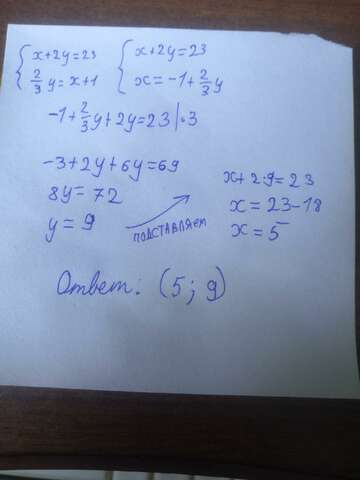 { x+2y=23
2/3 y = x+1
{ x+2y=23
x = -1 + 2/3 y
-1 + 2/3 y + 2y = 23 | ·3
-3+2y+6y=69
8y = 72
y = 9
подставляем
x+2·9=23
x = 23-18
x = 5
Ответ: (5; 9)